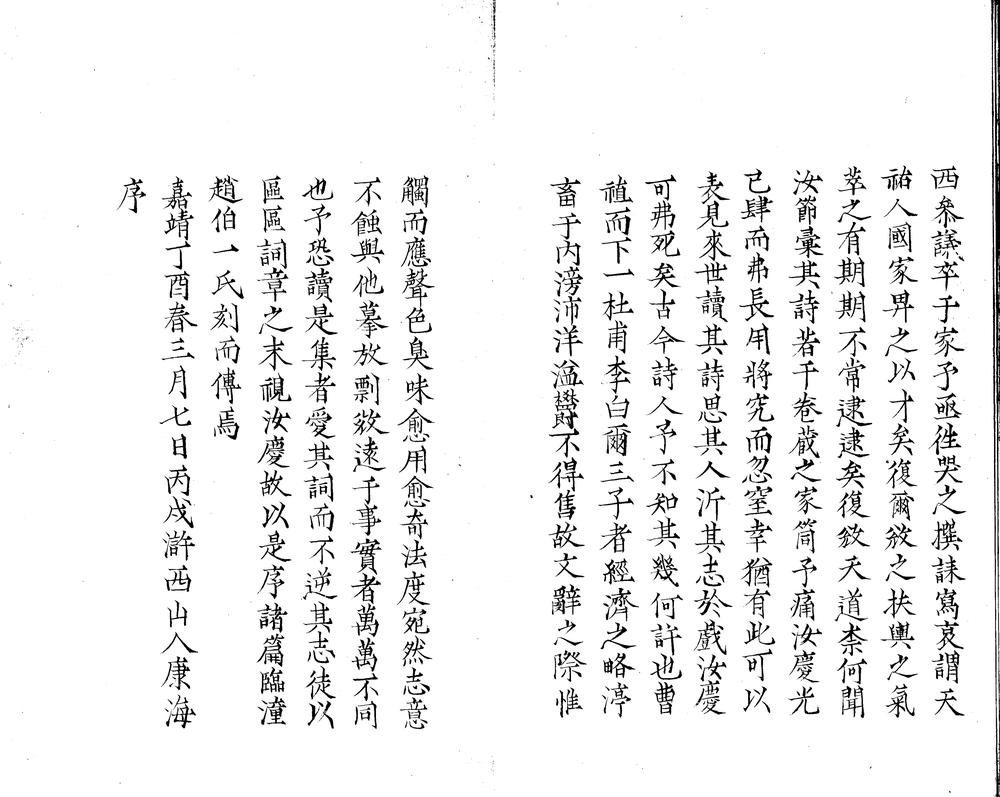 西叅議卒于家予亟徃哭之撰誄寫哀謂天
祐人國家畀之以才矣復爾敓之扶輿之氣
萃之有期期不常逮逮矣復敓天道柰何聞
汝節彙其詩若干卷蔵之家笥予痛汝慶光
已肆而弗長用將究而忽窒幸猶有此可以
表見來世讀其詩思其人泝其志於戲汝慶
可弗死矣古今詩人予不知其幾何許也曹
植而下一杜甫李白爾三子者經濟之略渟
畜于内滂沛洋溢欝不得售故文辭之際惟
觸而應聲色臭味愈用愈奇法度宛然志意
不蝕與他摹放剽敓遠于事實者萬萬不同
也予恐讀是集者愛其詞而不逆其志徒以
區區詞章之末視汝慶故以是序諸篇臨潼
趙伯一氏刻而傳焉
嘉靖丁酉春三月七日丙戌滸西山人康海
序